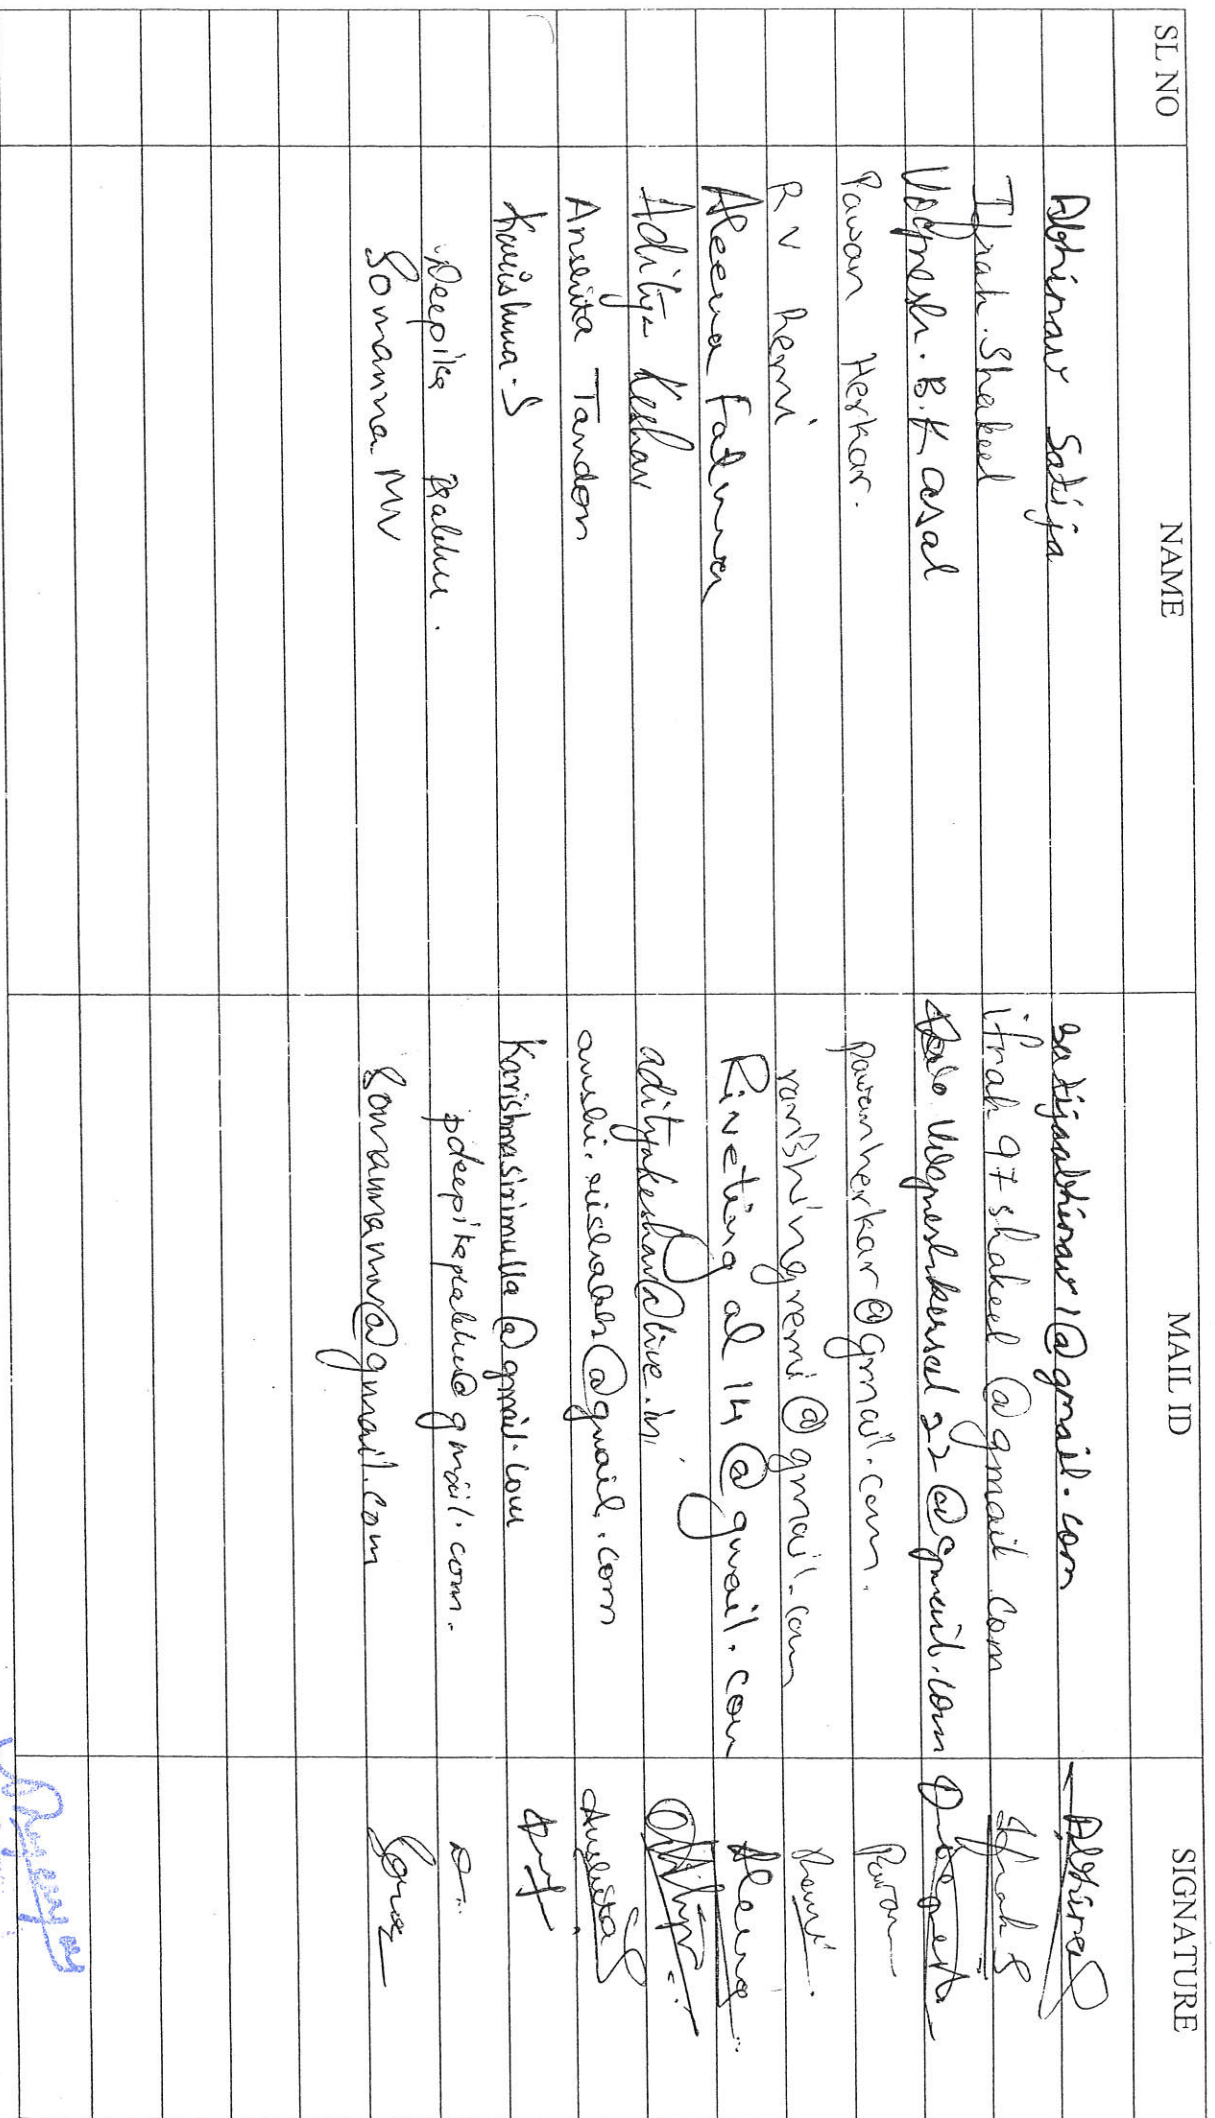 SL NO NAME MAIL ID SIGNATURE
Abhinav Satija satijaabhinav1@gmail.com Abhinav
Ifrah.Shakeel ifrah97shakeel@gmail.com Ifrah S
B.Kasal
Pawan Herkar. pawanherkar@gmail.com. Pavan
R V Remi ravishingremi@gmail.com Remi.
Aleena Fatima Rivetingal14@gmail.com Aleena
Aditya Keshav adityakeshav@live.in Aditya
Anshita Tandon @gmail.com Anshita
Karishma.S Karishmasirimulla@gmail.com
Deepika Prabhu. pdeepikaprabhu@gmail.com. D.
Somanna MV Somannamv@gmail.com